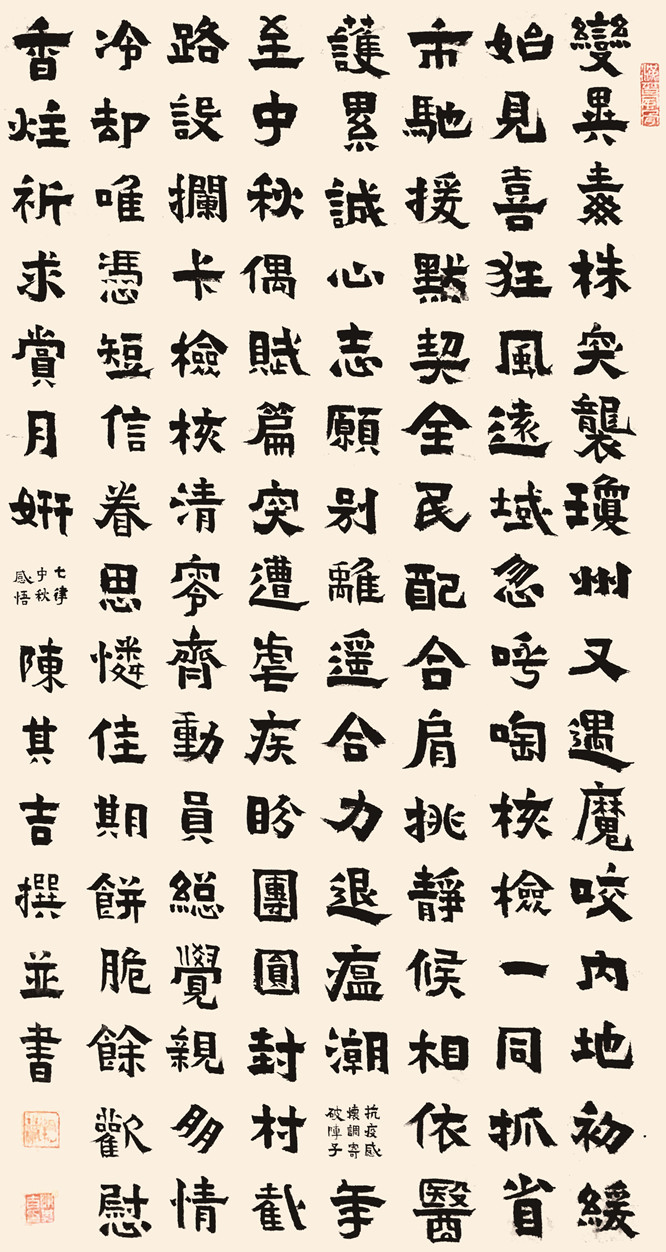 變異毒株突襲瓊州又遇魔咬内地初緩
始見喜狂風遠域忽呼啕核檢一同抓省
市馳援默契全民配合肩挑靜候相依醫
護累誠心志願别離遥合力退瘟潮
抗疫感
懷調寄
破陣子
年
至中秋偶賦篇突遭虐疾盼團圓封村截
路設攔卡檢核清零齊動員總覺親朋情
冷却唯憑短信眷思憐佳期餅脆餘歡慰
香炷祈求賞月妍
七律
中秋
感悟
陳其吉撰並書